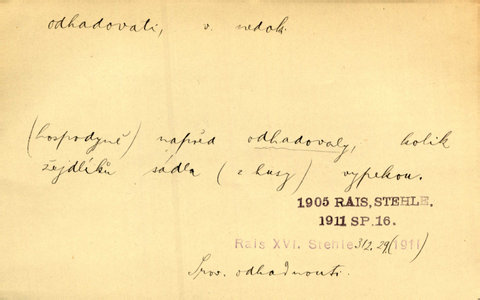 odhadovati, v. nedok.
(hospodyně) napřed odhadovaly, kolik
žejdlíků sádla (z husy) vypekou.
1905 RAIS, STEHLE.
1911 SP. 16.
Rais XVI. Stehle 312. 29 (1911)
Srov. odhadnouti.